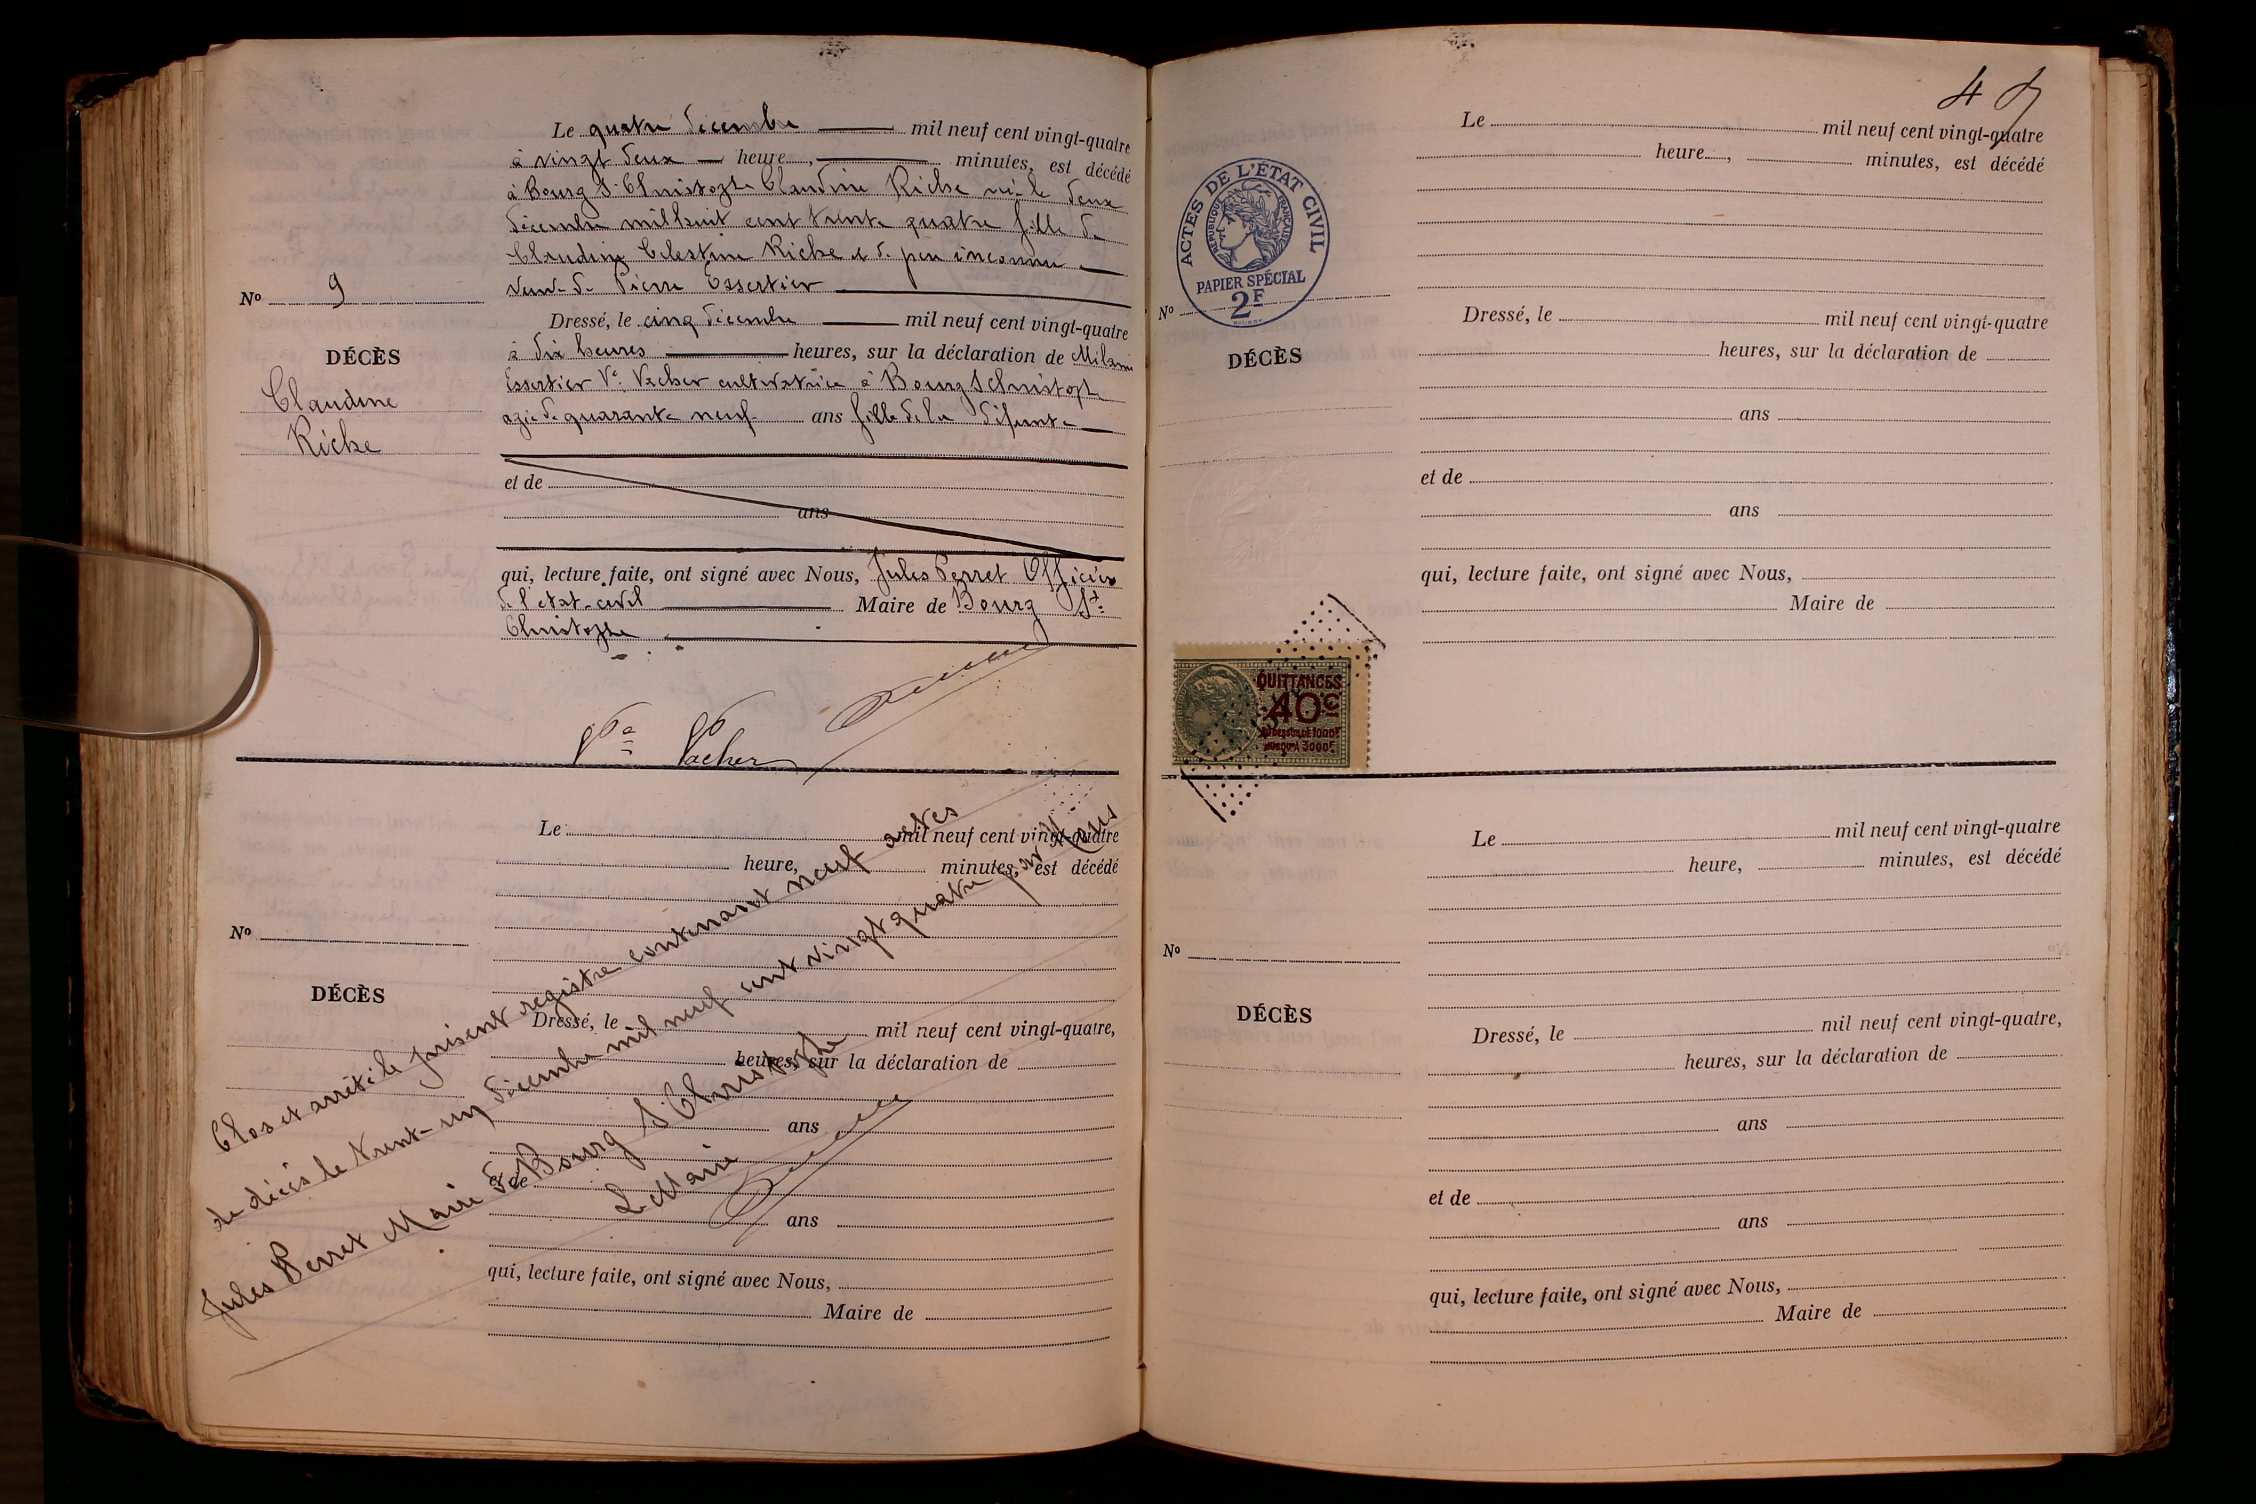 Le quatre décembre mil neuf cent vingt-quatre
à vingt deux heure, minutes, est décédé
à Bourg St Christophe Claudine Riche née le deux
décembre mil huit cent trente quatre fille de
Claudine Celestine Riche et de père inconnu
veuve de Pierre Essertier
No 9
DÉCÈS
Claudine
Riche
Dressé, le cinq décembre mil neuf cent vingt-quatre
à dix heures heures, sur la déclaration de
Essertier Ve Vacher cultivatrice à Bourg St Christophe
agée de quarante neuf ans fille de la défunte
et de
ans
qui, lecture faite, ont signé avec Nous, Jules Perret Officier
de l'état-civil Maire de Bourg St
Christophe
Ve Vacher
Le mil neuf cent vingt-quatre
heure, minutes, est décédé
No
DÉCÈS
Dressé, le mil neuf cent vingt-quatre,
heures, sur la déclaration de
ans
et de
ans
qui, lecture faite, ont signé avec Nous,
Maire de
Clos et arrêté le présent registre contenant neuf actes
de décès le trente-un décembre mil neuf cent vingt quatre par Nous
Jules Perret Maire de Bourg St Christophe
Le Maire
4
Le mil neuf cent vingt-quatre
heure, minutes, est décédé
ACTES DE L'ÉTAT CIVIL
RÉPUBLIQUE FRANÇAISE
PAPIER SPÉCIAL
2F
No
DÉCÈS
Dressé, le mil neuf cent vingt-quatre
heures, sur la déclaration de
ans
et de
ans
qui, lecture faite, ont signé avec Nous,
Maire de
QUITTANCES
40c
AU DESSUS DE 1000F
JUSQU'À 3000F
Le mil neuf cent vingt-quatre
heure, minutes, est décédé
No
DÉCÈS
Dressé, le mil neuf cent vingt-quatre,
heures, sur la déclaration de
ans
et de
ans
qui, lecture faite, ont signé avec Nous,
Maire de